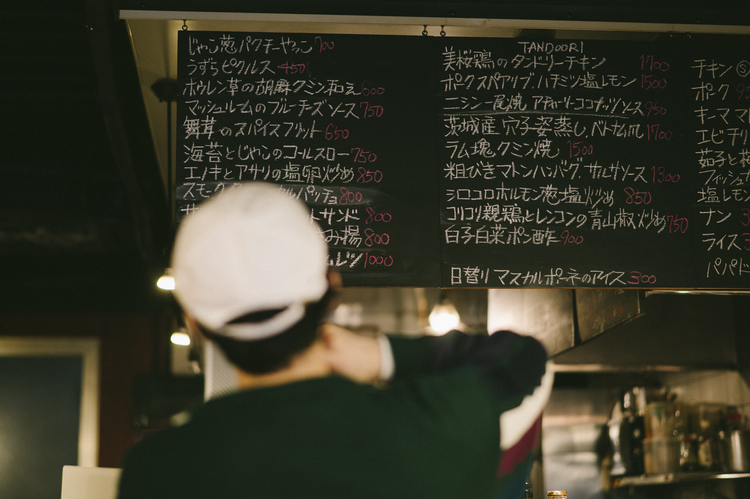 じゃこ葱パクチーやっこ 700
うずらピクルス 450
ホウレン草の胡麻クミン和え 600
マッシュルームのブルーチーズソース 750
舞茸のスパイスフリット 650
海苔とじゃこのコールスロー 750
エノキとアサリの塩卵炒め 850
スモーク パッチョ 800
トサンド 900
み揚 800
ムレツ 1000
TANDOORI
美桜鶏のタンドリーチキン 1700
ポークスペアリブ ハチミツ塩レモン 1500
ニシン一尾焼 アチャーリーココナッツソース 950
茨城産 穴子姿蒸し 1700
ラム塊クミン焼 1500
粗びきマトンハンバーグ サルサソース 1300
シロコロホルモン葱塩炒め 850
コリコリ親鶏とレンコンの青山椒炒め 750
白子白菜ポン酢 900
日替り マスカルポーネのアイス 300
チキン
ポーク
キーママ
エビチリ
茄子と
フィッシュ
塩レモン
ナン
ライス
パパド